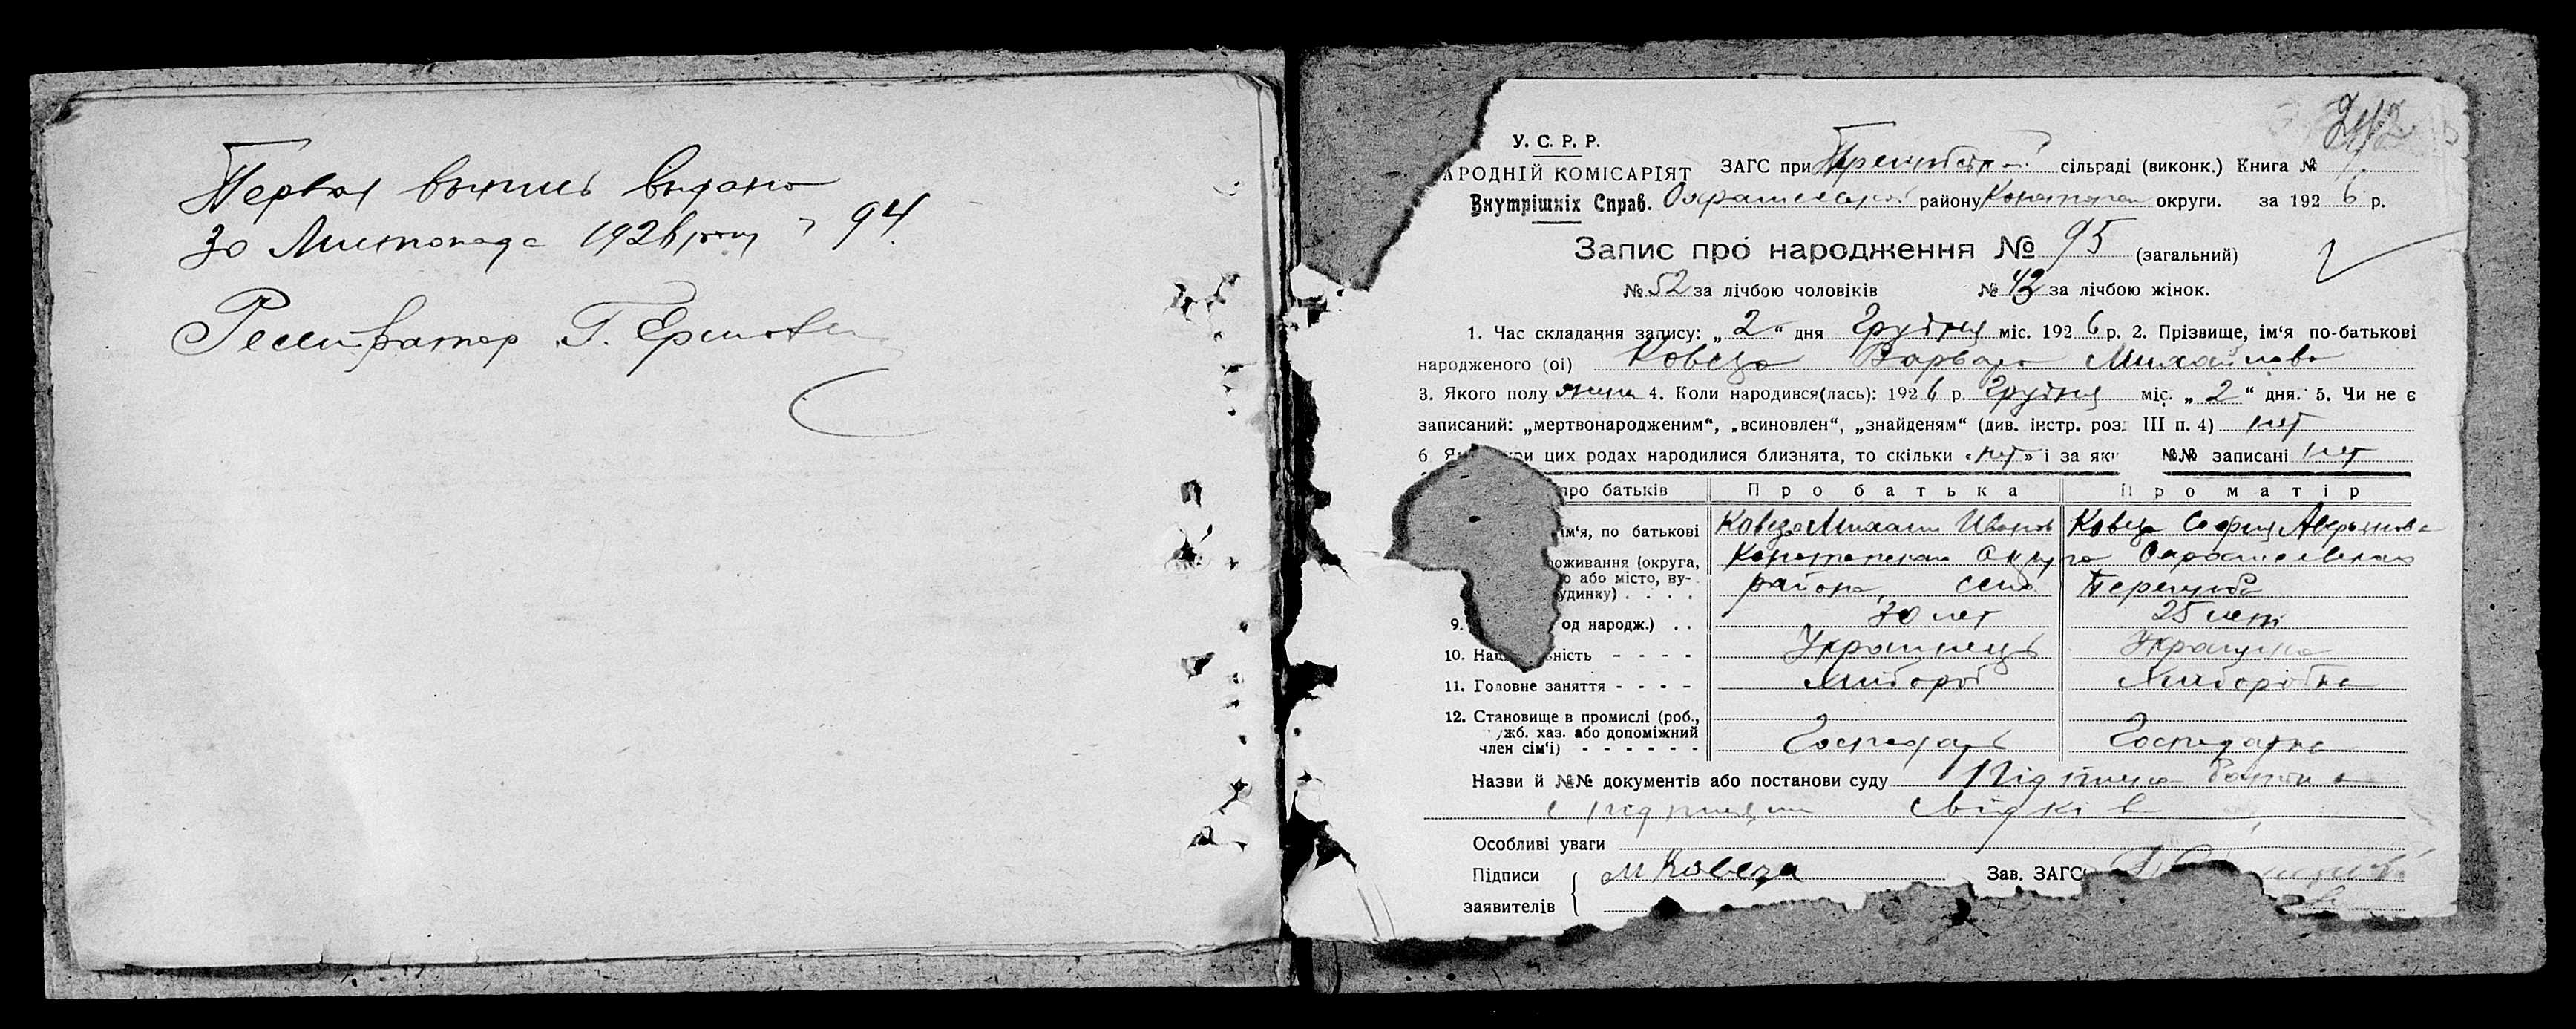 Первая выпись выдана
30 Листопада 1926 року 94.
Регистратор Г.
242
У. С. Р. Р.
АРОДНІЙ КОМІСАРІЯТ
Внутрішніх Справ.
ЗАГС при сільраді (виконк.) Книга №
району Конотопськ округи. за 1926 р.
Запис про народження № 95 (загальний)
№ 52 за лічбою чоловіків № 43 за лічбою жінок.
1. Час складання запису: „ 2 “ дня Грудня міс. 1926 р. 2. Прізвище, ім‘я по-батькові
народженого (ої) Ковеза Варвара Михайлова
3. Якого полу жіни 4. Коли народився(лась): 1926 р. Грудня міс. „ 2 “ дня. 5. Чи не є
записаний: „мертвонародженим“, „всиновлен“, „знайденям“ (див. інстр. роз. III п. 4) нет
6 при цих родах народилися близнята, то скільки « нет » і за як №№ записані нет
про батьків П р о б а т ь к а П р о м а т і р
ім‘я, по батькові Ковеза Михаил Иванов Ковеза София Аверьянова
роживання (округа, Конотопская Округа
о або місто, ву-
удинку) . . . . района, село
9. од народж.) . . 30 лет 25 лет
10. Нац ьність - - - - Украинець Украинка
11. Головне заняття - - - - Хлібороб Хліборобка
12. Становище в промислі (роб.,
ужб. хаз. або допоміжний
член сім‘ї) - - - - - - Господарь Господарка
Назви й №№ документів або постанови суду Підписка батька
с підписом свідків
Особливі уваги
Підписи М Ковеза Зав. ЗАГС
заявителів